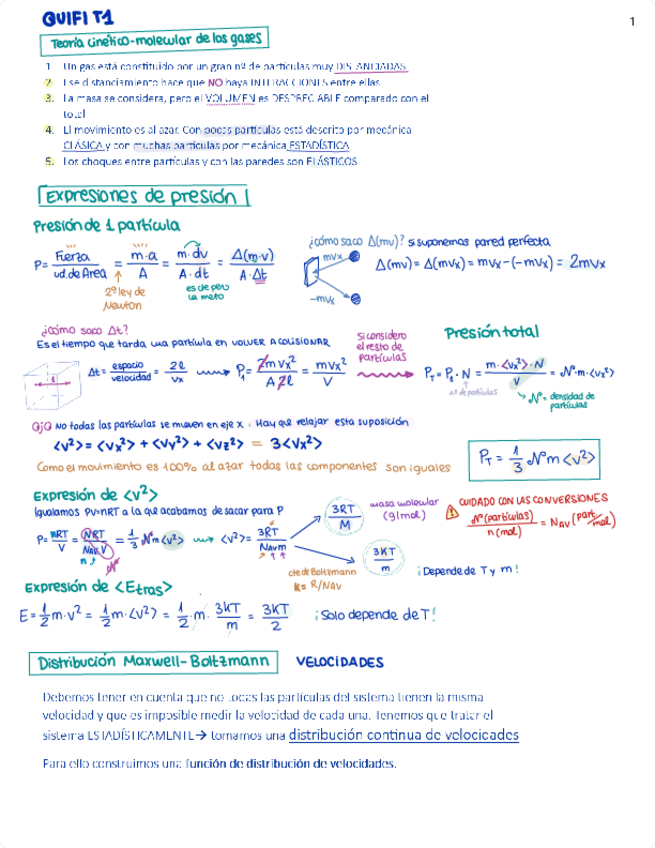 QUIFI T1
1
Teoría cinético-molecular de los gases
1. Un gas está constituido por un gran nº de partículas muy DISTANCIADAS
2. Ese distanciamiento hace que NO haya INTERACCIONES entre ellas
3. La masa se considera, pero el VOLUMEN es DESPRECIABLE comparado con el
total
4. El movimiento es al azar. Con pocas partículas está descrito por mecánica
CLÁSICA y con muchas partículas por mecánica ESTADÍSTICA
5. Los choques entre partículas y con las paredes son ELÁSTICOS
Expresiones de presión
Presión de 1 partícula
P = Fuerza / ud. de Área = m·a / A = m·dv / A·dt = Δ(m·v) / A·Δt
2ª ley de Newton
es de peu la meto
¿cómo saco Δ(mv)? si suponemos pared perfecta
mvx
-mvx
Δ(mv) = Δ(mvx) = mvx - (-mvx) = 2mvx
¿cómo saco Δt?
Es el tiempo que tarda una partícula en VOLVER A COLISIONAR
l
Δt = espacio / velocidad = 2l / vx → P₁ = 2mvx² / A2l = mvx² / V
Si considero el resto de partículas
Presión total
PT = P₁ · N = m·<vx²>·N / V = N·m·<vx²>
nº de partículas
N = densidad de partículas
OJO No todas las partículas se mueven en eje x. Hay que relajar esta suposición
<v²> = <vx²> + <vy²> + <vz²> = 3<vx²>
Como el movimiento es 100% al azar todas las componentes son iguales
PT = 1/3 N m <v²>
Expresión de <v²>
Igualamos PV=nRT a la que acabamos de sacar para P
P = nRT / V = NRT / NAV·V = 1/3 N m <v²> → <v²> = 3RT / NAV m
n
N
3RT / M
masa molecular (g/mol)
3KT / m
cte de Boltzmann
K = R/NAV
CUIDADO CON LAS CONVERSIONES
N (partículas) / n (mol) = NAV (part/mol)
¡Depende de T y m!
Expresión de <Etras>
E = 1/2 m·v² = 1/2 m·<v²> = 1/2 · m · 3KT / m = 3KT / 2
¡Solo depende de T!
Distribución Maxwell-Boltzmann VELOCIDADES
Debemos tener en cuenta que no todas las partículas del sistema tienen la misma
velocidad y que es imposible medir la velocidad de cada una. Tenemos que tratar el
sistema ESTADÍSTICAMENTE→ tomamos una distribución continua de velocidades
Para ello construimos una función de distribución de velocidades.